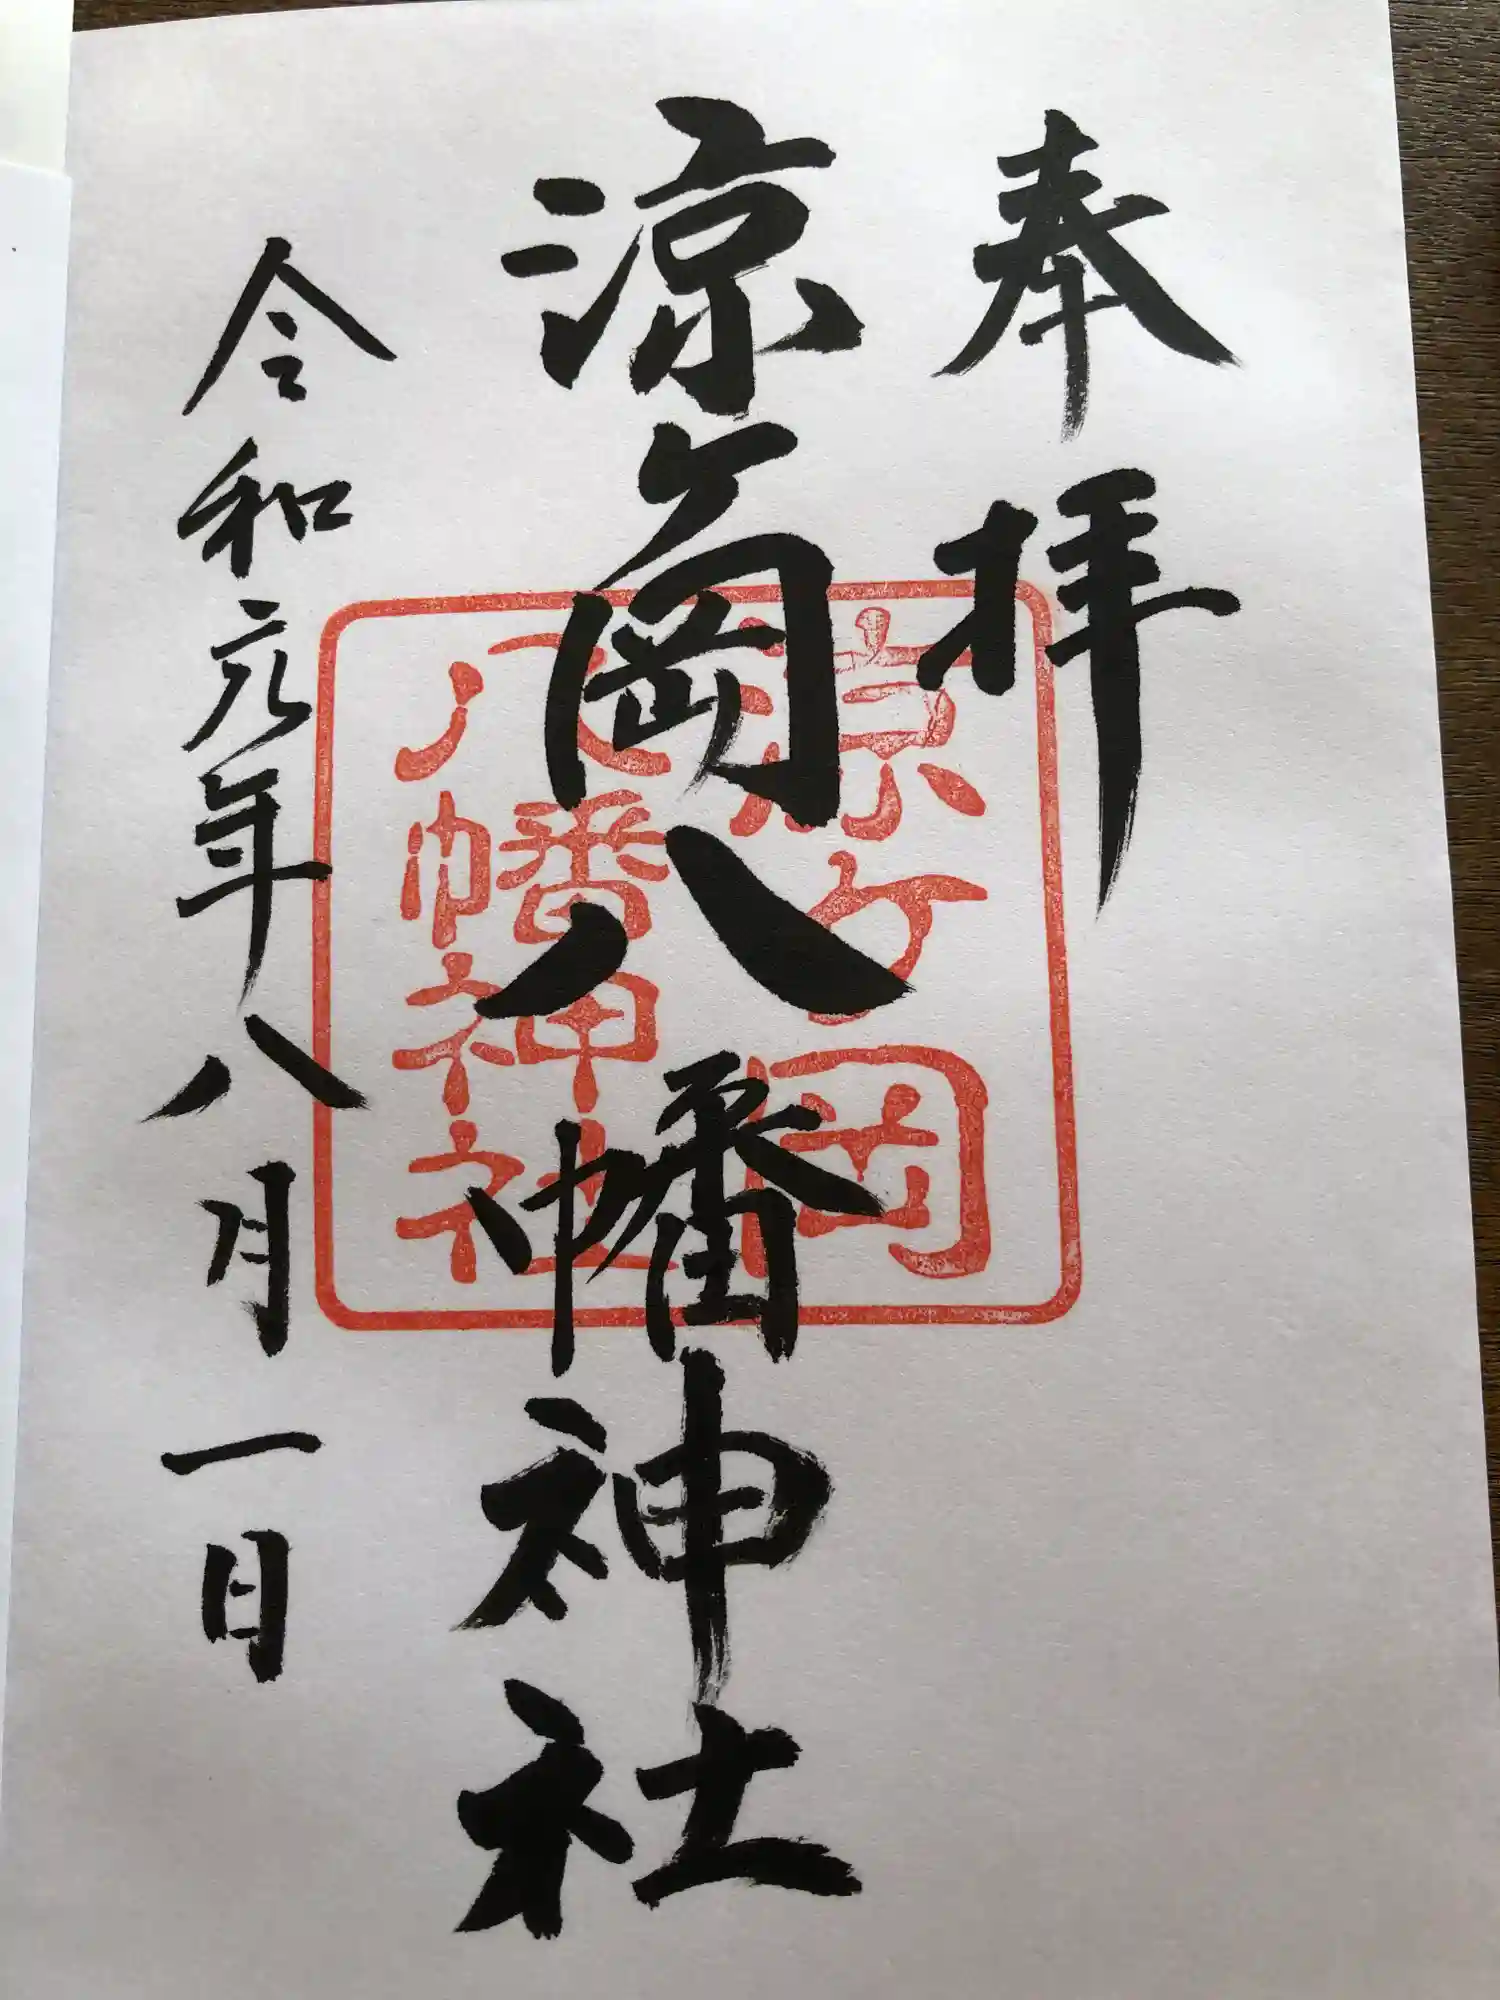 奉拝
涼ケ岡八幡神社
涼ケ岡
八幡神社
令和元年八月一日